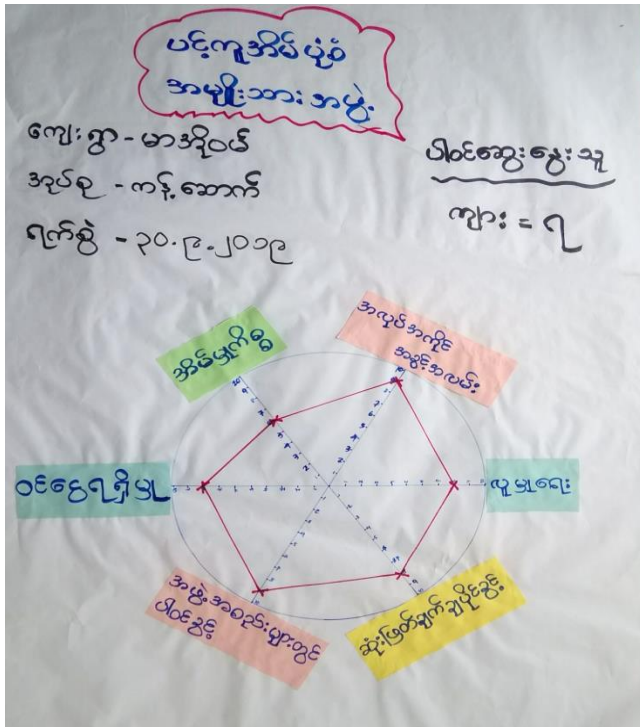 ပင့်ကူအိမ်ပုံစံ
အမျိုးသားအဖွဲ့
ကျေးရွာ - မာအိုဝယ်
အုပ်စု - ကန့်ဆောက်
ရက်စွဲ - ၃၀.၉.၂၀၁၉
ပါဝင်ဆွေးနွေးသူ
ကျား = ၇
အိမ်မှုကိစ္စ
အလုပ်အကိုင်
အခွင့်အလမ်း
ဝင်ငွေရရှိမှု
လူမှုရေး
အဖွဲ့အစည်းများတွင်
ပါဝင်ခွင့်
ဆုံးဖြတ်ချက်ချပိုင်ခွင့်